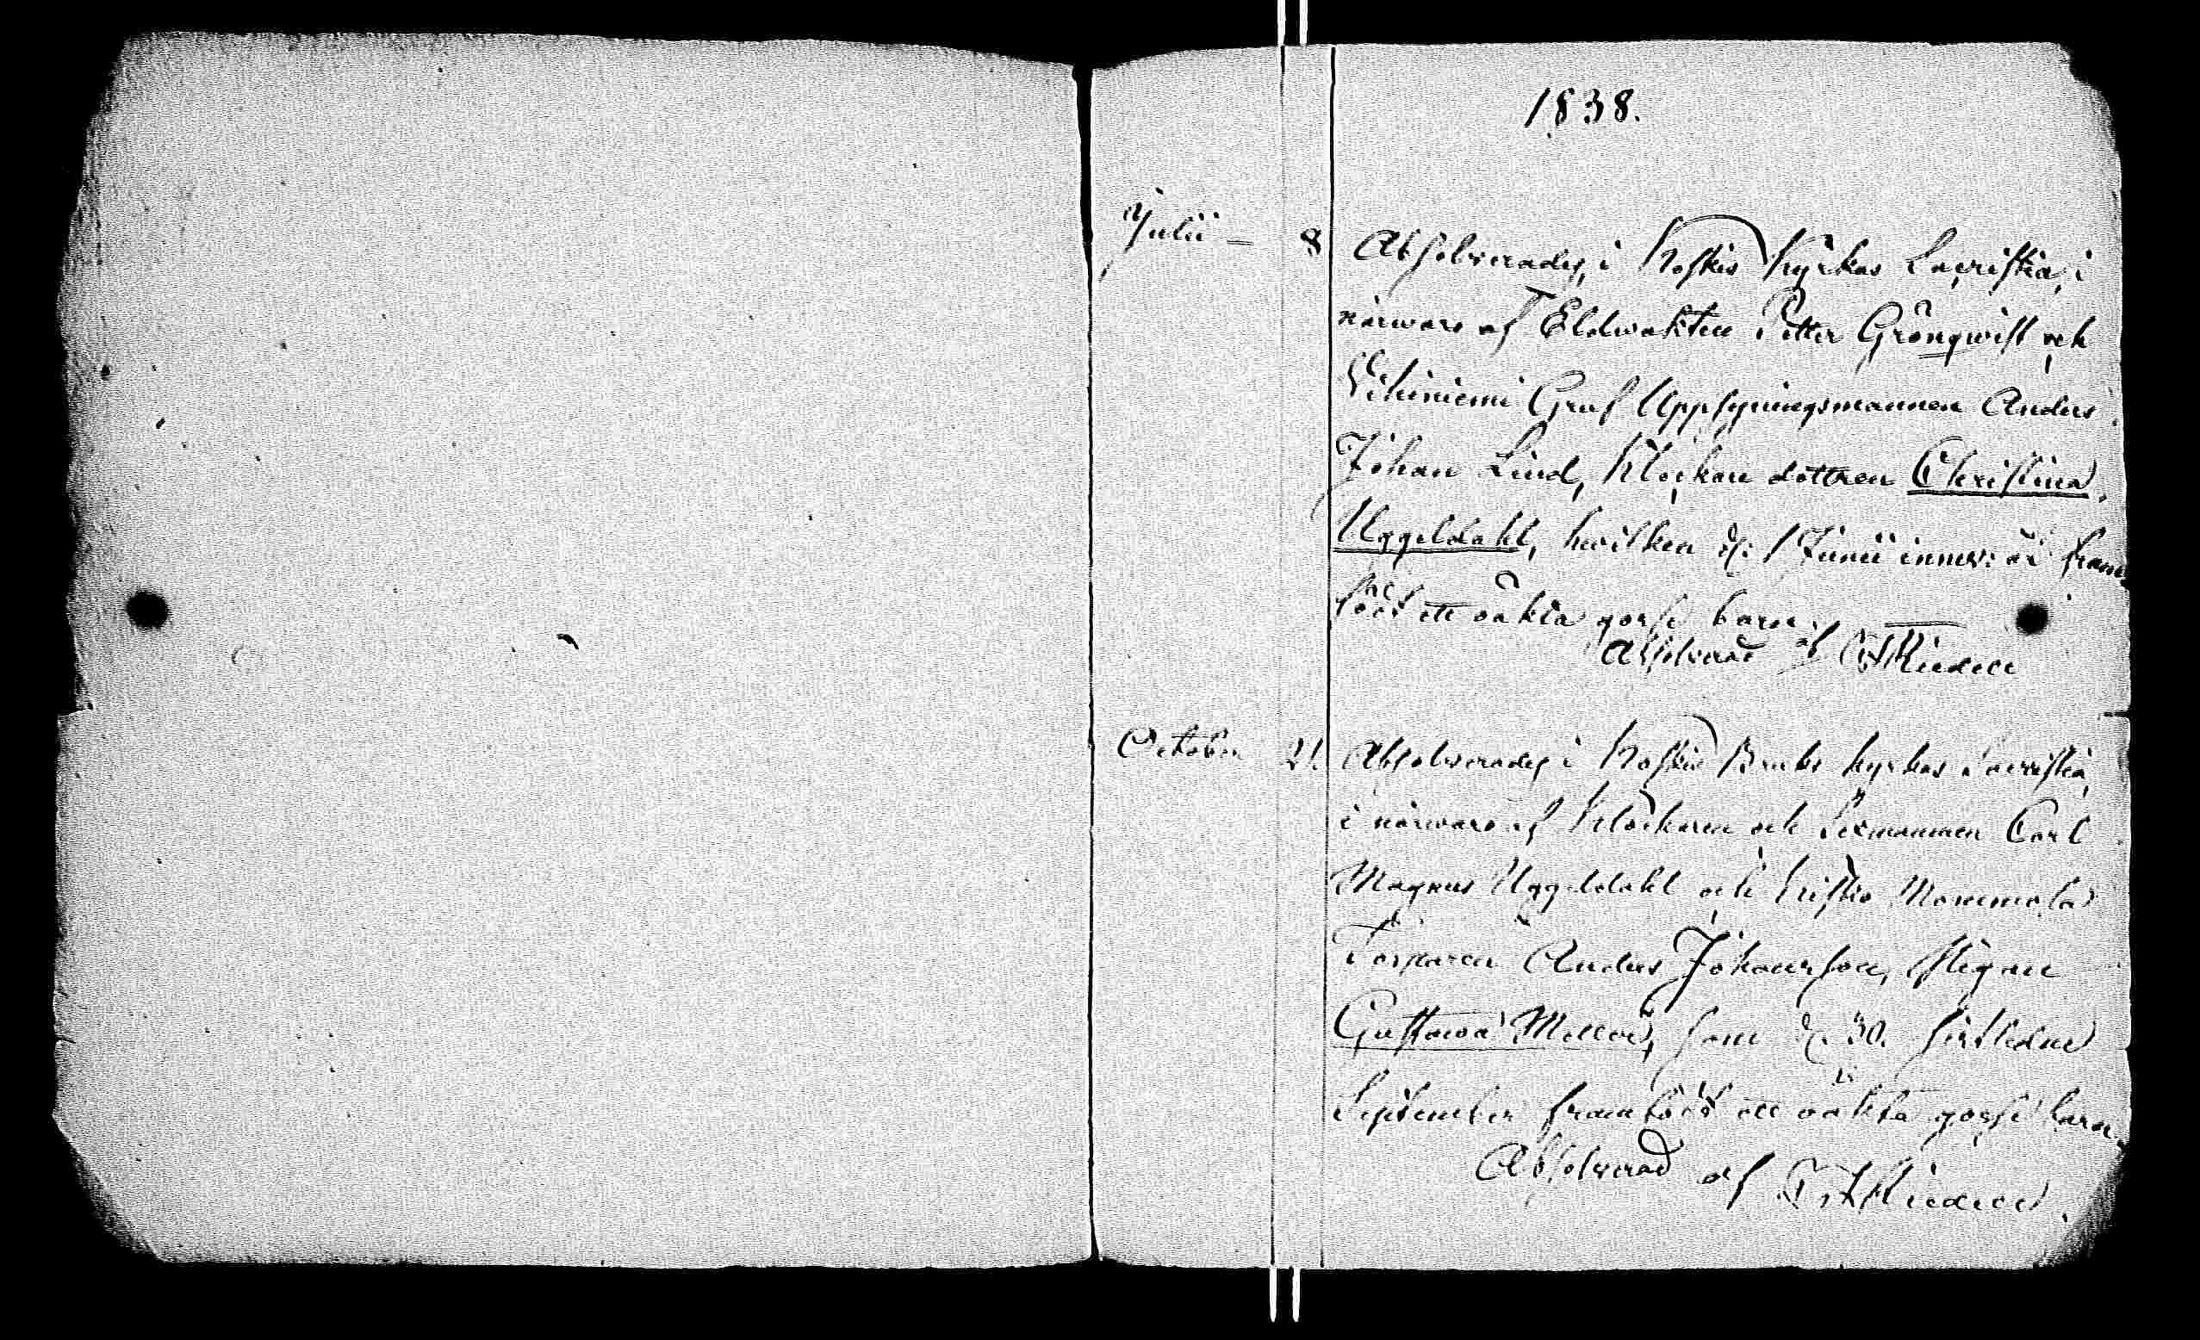 1838.
Julii – 8 Absolverades, i Koskis Kyrkas Sacristia, i
närwaro af Eldwakten Petter Grönqwist och
Vihiniemi Gruf Uppsyningsmannen Anders
Johan Lind, Klockare dottren Christina
Uggeldahl, hwilken d. 1 Junii innew: år fram
födt ett oäkta gosse barn.
Absolverad af
October 21. Absolverades i Koskis Bruks kyrkas Sacristia,
i närwaro af Klockaren och Sexmannen Carl
Magnus Uggeldahl och Kisko Mommola
Torparen Anders Johansson, Pigan
Gustawa, som d. 30. sistledne
September framfödt ett oäkta gosse barn.
Absolverad af